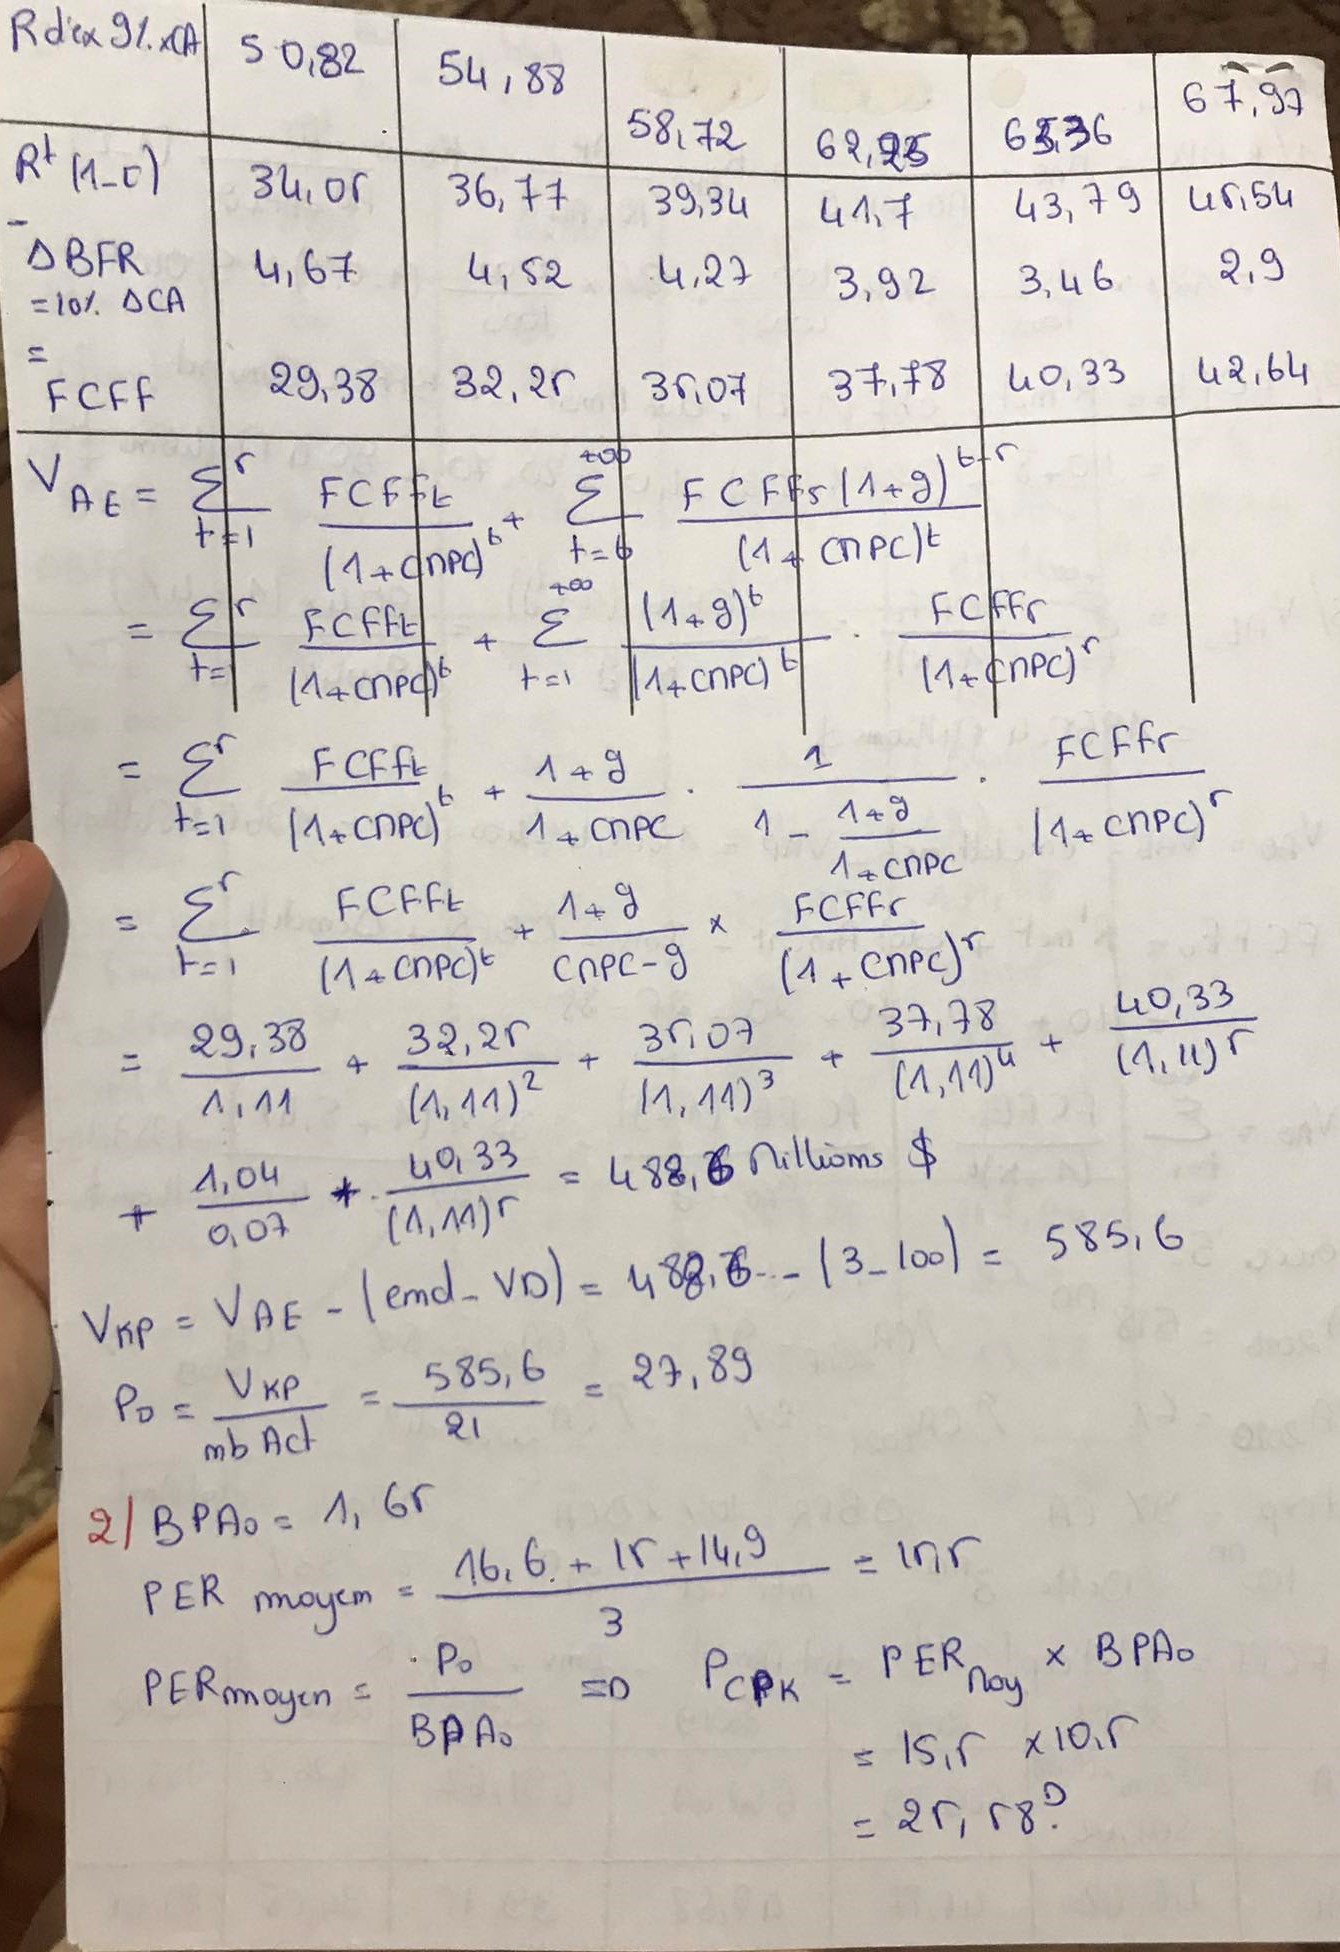 Rd'ex 9% xCA 50,82 54,88 58,72 62,25 65,36 67,97
Rt (1-τ) 34,05 36,77 39,34 41,7 43,79 45,54
-
ΔBFR 4,67 4,52 4,27 3,92 3,46 2,9
=10% ΔCA
=
FCFF 29,38 32,25 35,07 37,78 40,33 42,64
V_AE = Σ_{t=1}^{5} FCFF_t / (1+CMPC)^t + Σ_{t=6}^{+∞} FCFF_5 (1+g)^{t-5} / (1+CMPC)^t
= Σ_{t=1}^{5} FCFF_t / (1+CMPC)^t + Σ_{t=1}^{+∞} (1+g)^t / (1+CMPC)^t . FCFF_5 / (1+CMPC)^5
= Σ_{t=1}^{5} FCFF_t / (1+CMPC)^t + 1+g / 1+CMPC . 1 / 1 - 1+g / 1+CMPC . FCFF_5 / (1+CMPC)^5
= Σ_{t=1}^{5} FCFF_t / (1+CMPC)^t + 1+g / CMPC-g × FCFF_5 / (1+CMPC)^5
= 29,38 / 1,11 + 32,25 / (1,11)^2 + 35,07 / (1,11)^3 + 37,78 / (1,11)^4 + 40,33 / (1,11)^5
+ 1,04 / 0,07 * 40,33 / (1,11)^5 = 488,6 Millions $
V_KP = V_AE - (end - VD) = 488,6 - (3-100) = 585,6
P_0 = V_KP / nb Act = 585,6 / 21 = 27,89
2/ BPA_0 = 1,65
PER moyen = 16,6 + 15 + 14,9 / 3 = 15,5
PER moyen = P_0 / BPA_0 => P_CPK = PER_Moy × BPA_0
= 15,5 × 10,5
= 25,58?